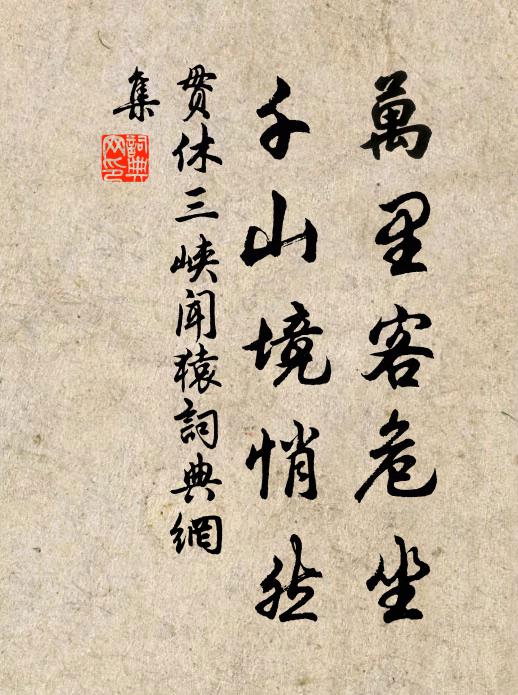 萬里客危坐
千山境悄然
貫休三峽聞猿詞典網
集
詞典
网印